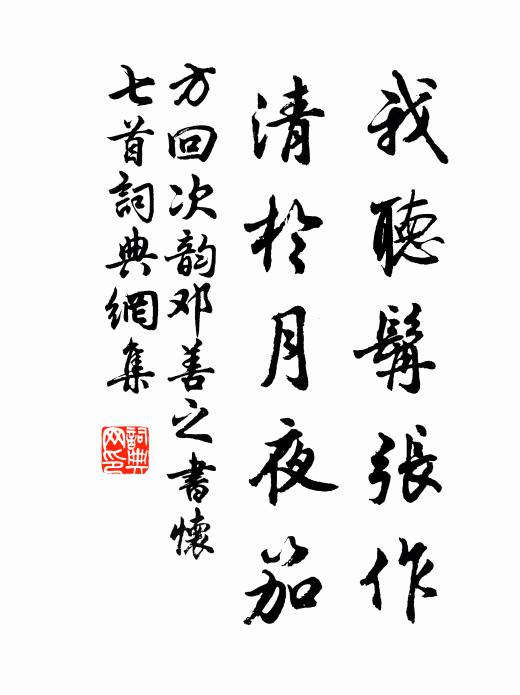 我聽髯張作
清於月夜笳
方回次韵邓善之書懷
七首詞典網集
詞典
网印